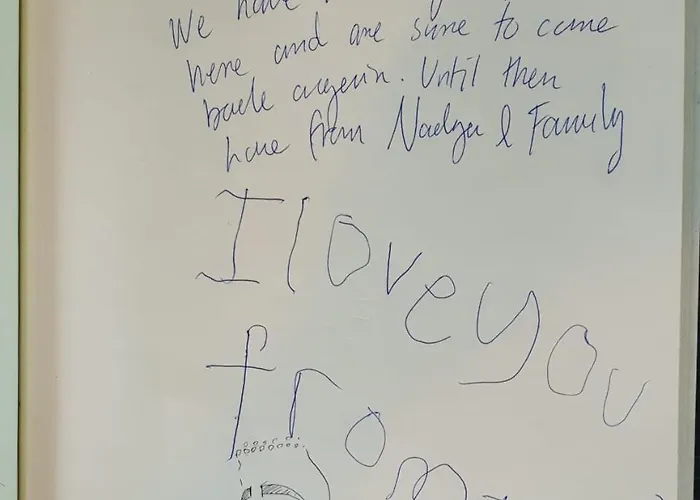 We have
here and are sure to come
back again. Until then
from Nadya & Family
I love you
from